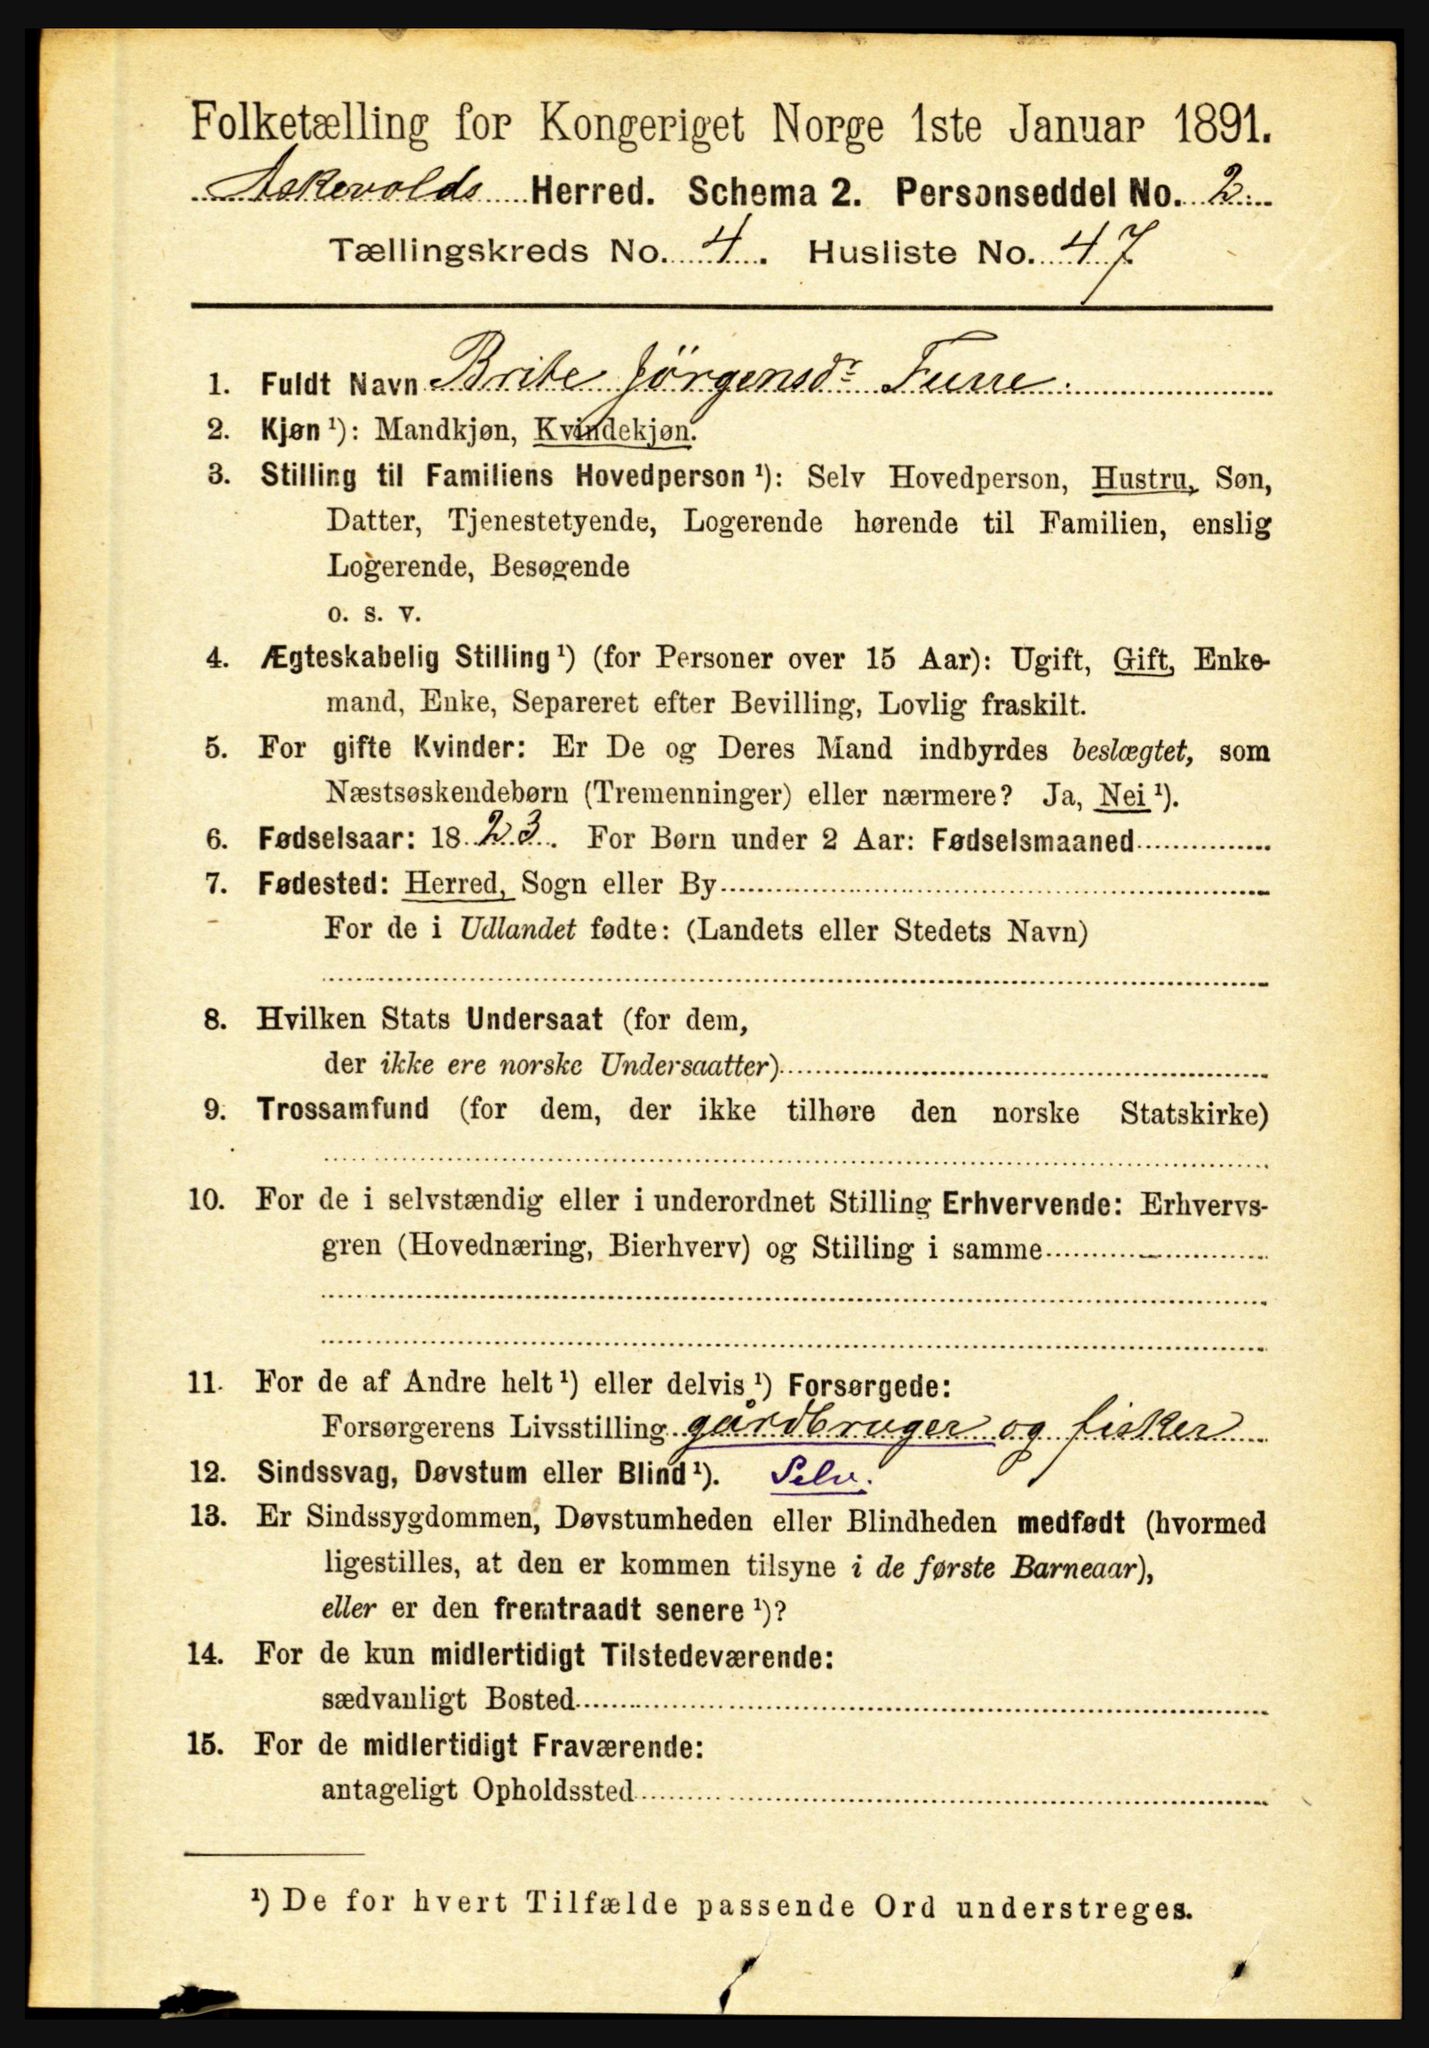 Folketælling for Kongeriget Norge 1ste Januar 1891.
Askevolds Herred. Schema 2. Personseddel No. 2.
Tællingskreds No. 4. Husliste No. 47
1. Fuldt Navn Brite Jörgensdr Furre
2. Kjøn ¹): Mandkjøn, Kvindekjøn.
3. Stilling til Familiens Hovedperson ¹): Selv Hovedperson, Hustru, Søn,
Datter, Tjenestetyende, Logerende hørende til Familien, enslig
Logerende, Besøgende
o. s. v.
4. Ægteskabelig Stilling ¹) (for Personer over 15 Aar): Ugift, Gift, Enke-
mand, Enke, Separeret efter Bevilling, Lovlig fraskilt.
5. For gifte Kvinder: Er De og Deres Mand indbyrdes beslægtet, som
Næstsøskendebørn (Tremenninger) eller nærmere? Ja, Nei ¹).
6. Fødselsaar: 1823. For Børn under 2 Aar: Fødselsmaaned
7. Fødested: Herred, Sogn eller By
For de i Udlandet fødte: (Landets eller Stedets Navn)
8. Hvilken Stats Undersaat (for dem,
der ikke ere norske Undersaatter)
9. Trossamfund (for dem, der ikke tilhøre den norske Statskirke)
10. For de i selvstændig eller i underordnet Stilling Erhvervende: Erhvervs-
gren (Hovednæring, Bierhverv) og Stilling i samme
11. For de af Andre helt ¹) eller delvis ¹) Forsørgede:
Forsørgerens Livsstilling gårdbruger og fisker
12. Sindssvag, Døvstum eller Blind ¹). Selv.
13. Er Sindssygdommen, Døvstumheden eller Blindheden medfødt (hvormed
ligestilles, at den er kommen tilsyne i de første Barneaar),
eller er den fremtraadt senere ¹)?
14. For de kun midlertidigt Tilstedeværende:
sædvanligt Bosted
15. For de midlertidigt Fraværende:
antageligt Opholdssted
¹) De for hvert Tilfælde passende Ord understreges.